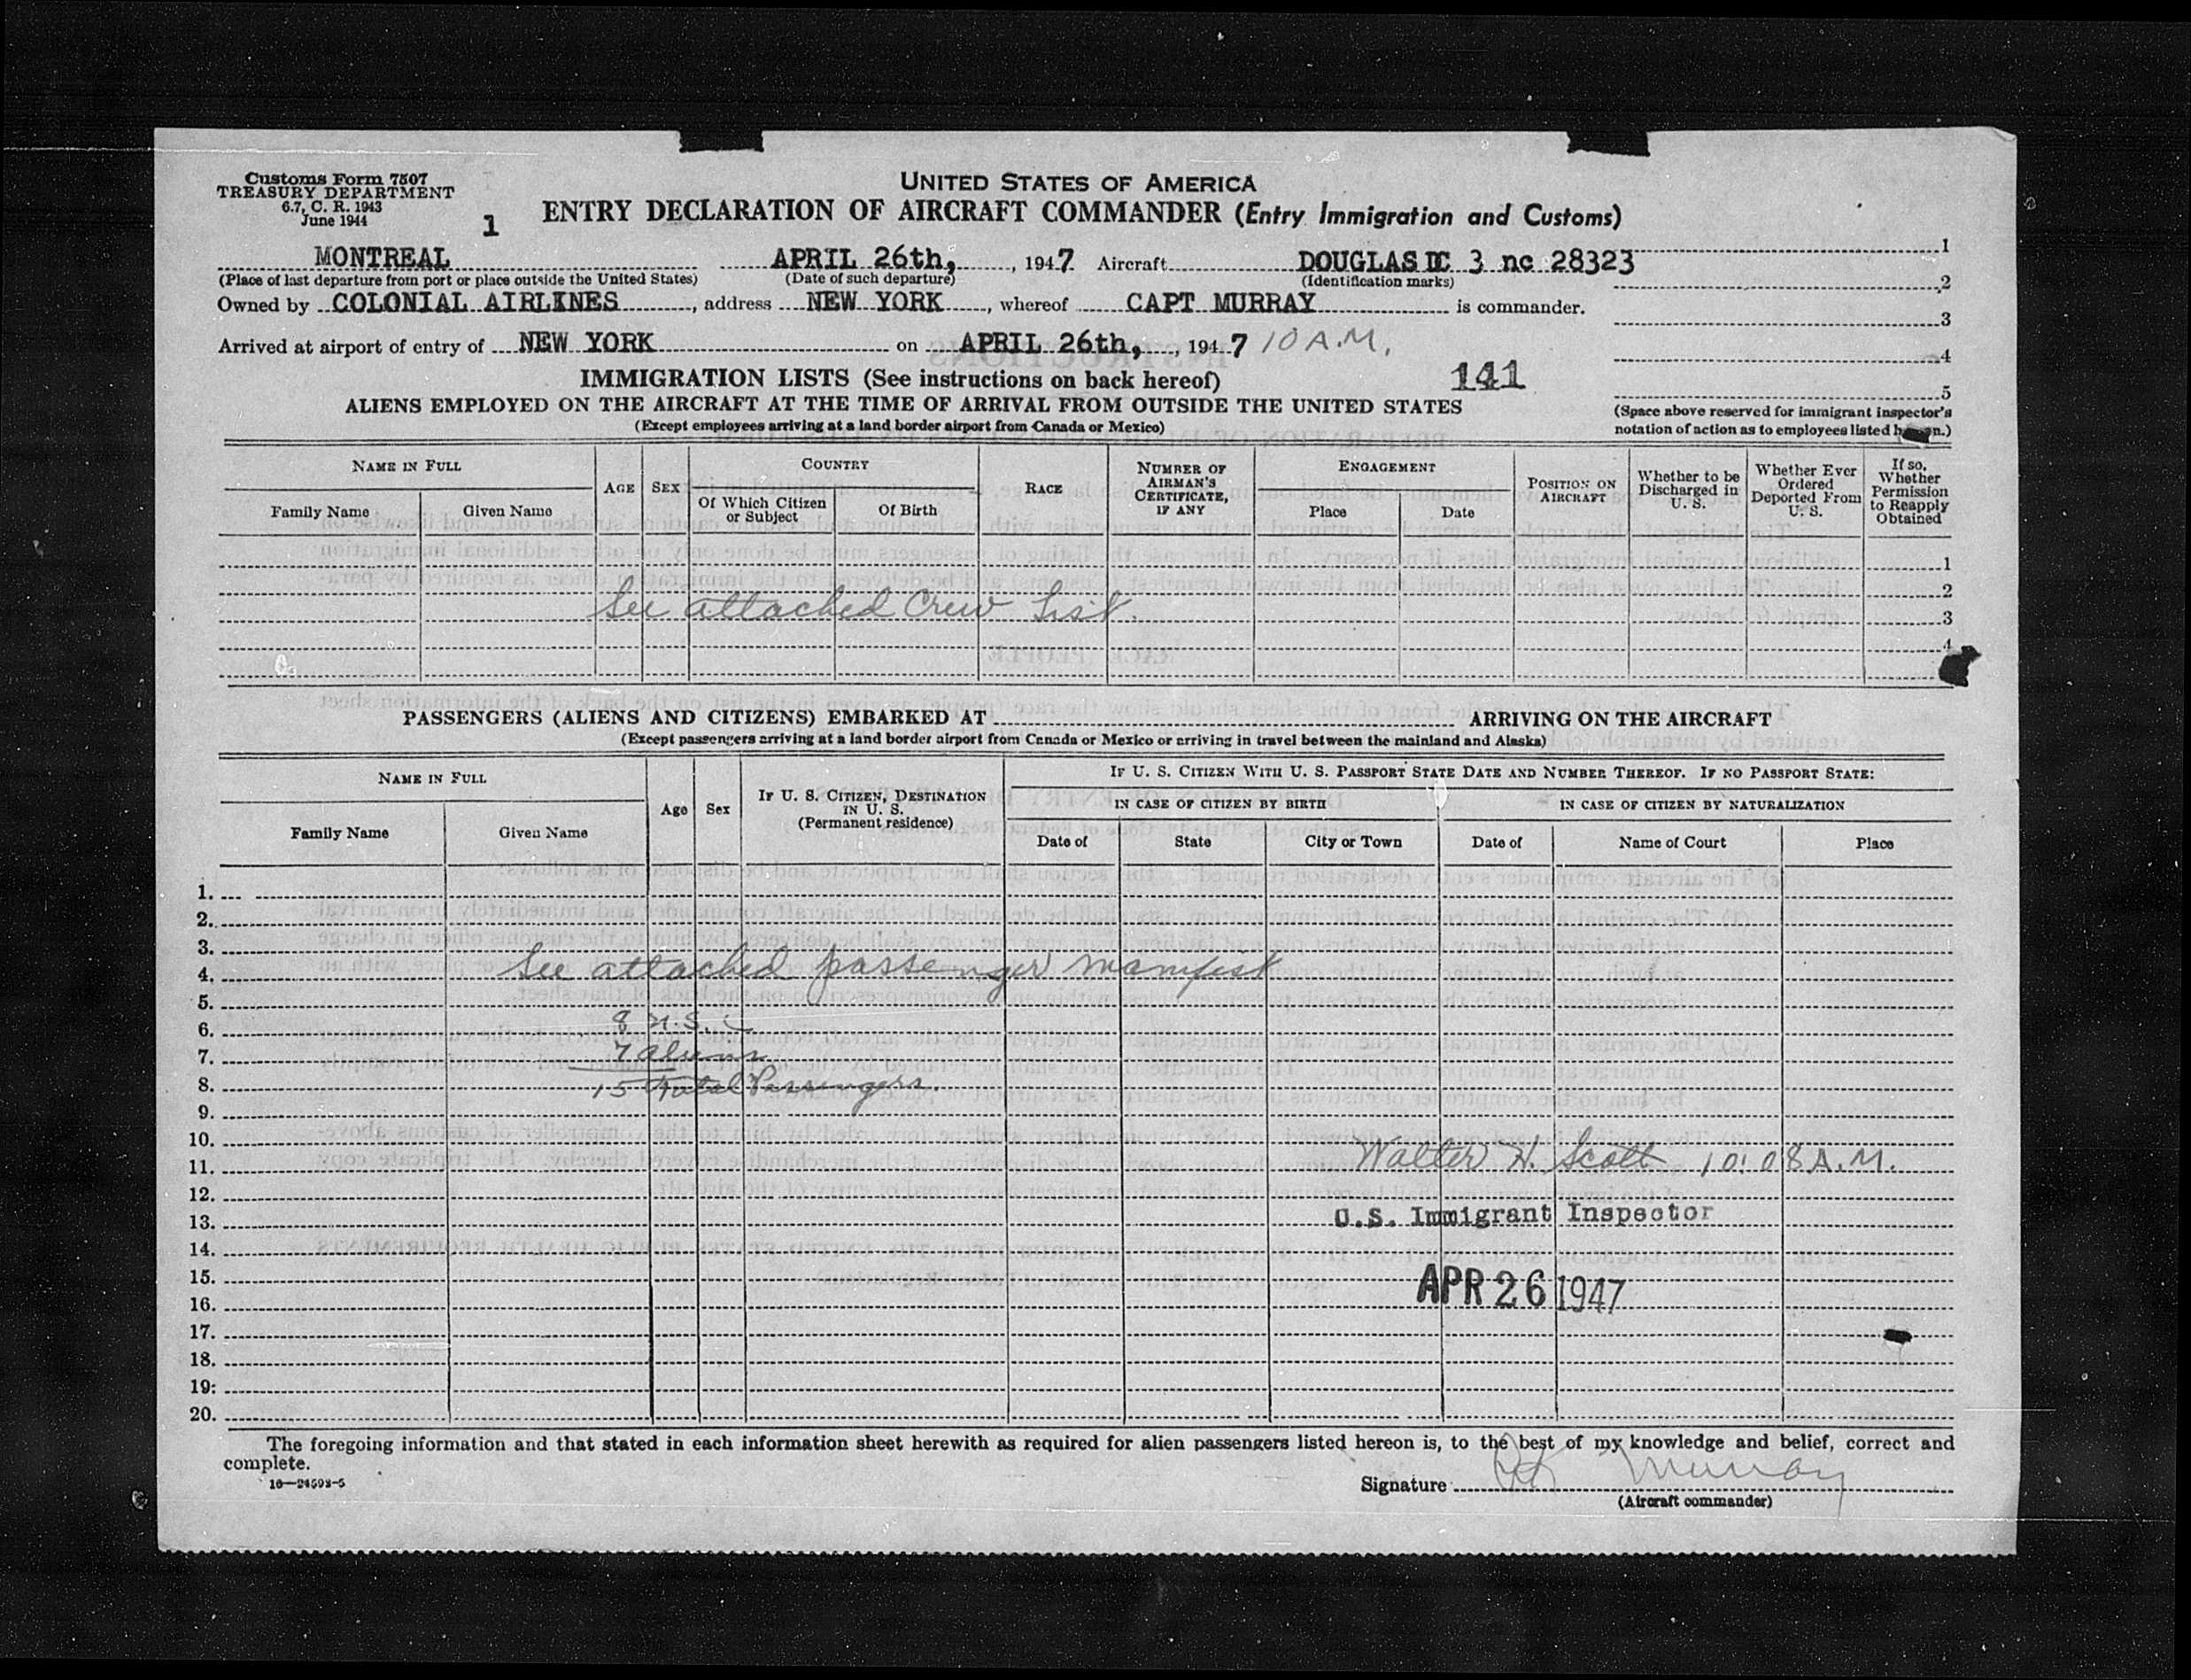 Customs Form 7507
TREASURY DEPARTMENT
6.7, C. R. 1943
June 1944
1
UNITED STATES OF AMERICA
ENTRY DECLARATION OF AIRCRAFT COMMANDER (Entry Immigration and Customs)
MONTREAL APRIL 26th, , 1947 Aircraft DOUGLAS DC 3 nc 28323 1
(Place of last departure from port or place outside the United States) (Date of such departure) (Identification marks) 2
Owned by COLONIAL AIRLINES , address NEW YORK , whereof CAPT MURRAY is commander.
3
Arrived at airport of entry of NEW YORK on APRIL 26th, , 1947 10 A.M.
4
IMMIGRATION LISTS (See instructions on back hereof) 141
5
ALIENS EMPLOYED ON THE AIRCRAFT AT THE TIME OF ARRIVAL FROM OUTSIDE THE UNITED STATES
(Except employees arriving at a land border airport from Canada or Mexico)
(Space above reserved for immigrant inspector's
notation of action as to employees listed
NAME IN FULL
Family Name Given Name
AGE SEX
COUNTRY
Of Which Citizen or Subject Of Birth
RACE
NUMBER OF AIRMAN'S CERTIFICATE, IF ANY
ENGAGEMENT
Place Date
POSITION ON AIRCRAFT
Whether to be Discharged in U. S.
Whether Ever Ordered Deported From U. S.
If so, Whether Permission to Reapply Obtained
1
2
See attached Crew List.
3
4
PASSENGERS (ALIENS AND CITIZENS) EMBARKED AT ARRIVING ON THE AIRCRAFT
(Except passengers arriving at a land border airport from Canada or Mexico or arriving in travel between the mainland and Alaska)
NAME IN FULL
Family Name Given Name
Age Sex
IF U. S. CITIZEN, DESTINATION IN U. S. (Permanent residence)
IF U. S. CITIZEN WITH U. S. PASSPORT STATE DATE AND NUMBER THEREOF. IF NO PASSPORT STATE:
IN CASE OF CITIZEN BY BIRTH IN CASE OF CITIZEN BY NATURALIZATION
Date of State City or Town Date of Name of Court Place
1.
2.
3.
4. See attached passenger manifest
5.
6. 8 U.S.C
7. 7 aliens
8. 15 Total Passengers.
9.
10.
11. Walter H. Scott 10:08 A.M.
12.
13. U.S. Immigrant Inspector
14.
15.
16. APR 26 1947
17.
18.
19.
20.
The foregoing information and that stated in each information sheet herewith as required for alien passengers listed hereon is, to the best of my knowledge and belief, correct and
complete.
16—24598-5
Signature Murray
(Aircraft commander)